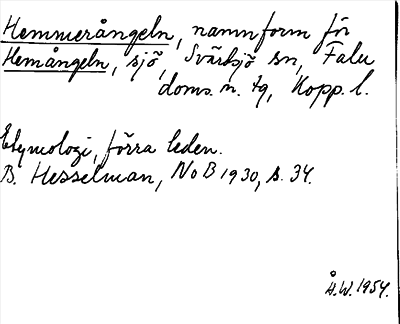 Hemmerångeln, namnform för
Hemångeln, sjö, Svärdsjö sn, Falu
doms. n. tg, Kopp. l.
Etymologi, förra leden.
B. Hesselman, NoB 1930, s. 34.
Å.W. 1954.